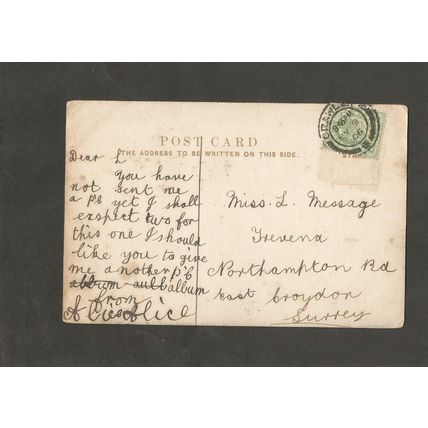 POST CARD
THE ADDRESS TO BE WRITTEN ON THIS SIDE.
Dear L
you have
not sent me
a pc yet I shall
exspect two for
this one I should
like you to give
me another p'c
album
from
Alice
Miss. L. Message
Trevena
Northampton Rd
East Croydon
Surrey